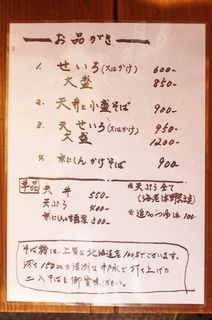 お品がき
1. せいろ(又はかけ) 600-
大盛 850-
2. 天丼と小盛そば 900-
3. 天せいろ(又はかけ) 950-
大盛 1200-
4. にしんかけそば 900-
単品
天丼 550-
天ぷら 400-
にしん
※天ぷら全て
(海老と野菜)
※追加つゆは100-
そば粉は、上質な北海道産100%でございます。
深さ150mの清冽な井水で打ち上げた
二八そばを御賞味ください。